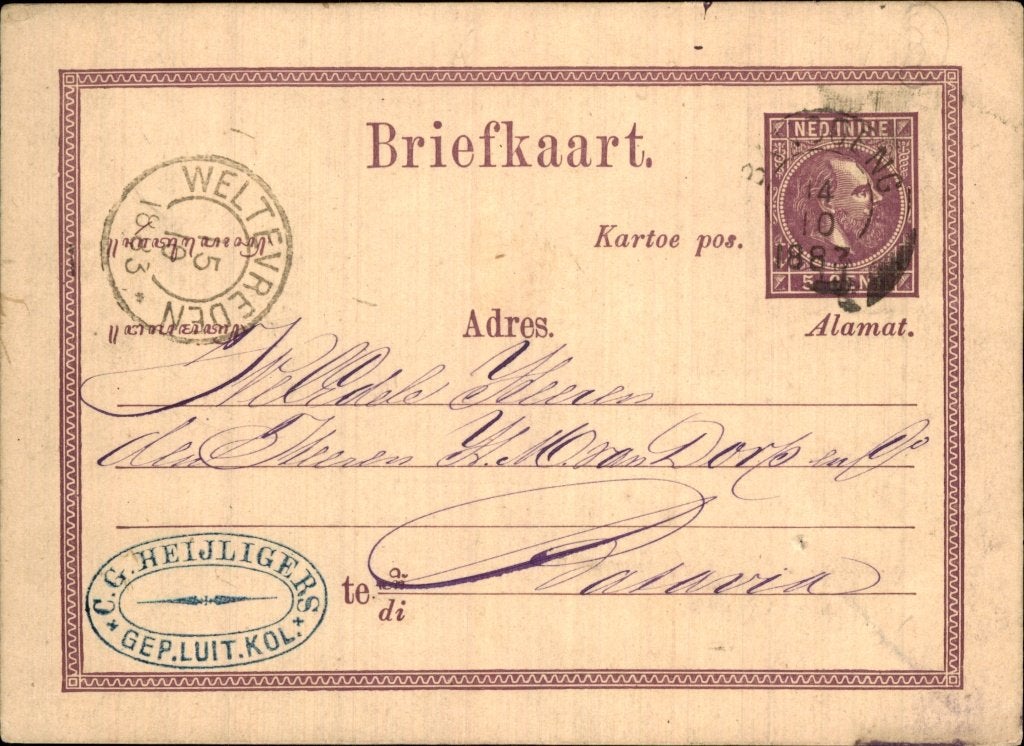 Briefkaart.
NED.INDIE
14
10
1883
5 CENT
WELTEVREDEN
15
10
1883
Kartoe pos.
Adres.
Alamat.
WelEdele Heeren
den Heeren H.M. van Dorp en Co
Batavia
te
di
C.G. HEIJLIGERS
GEP. LUIT. KOL.